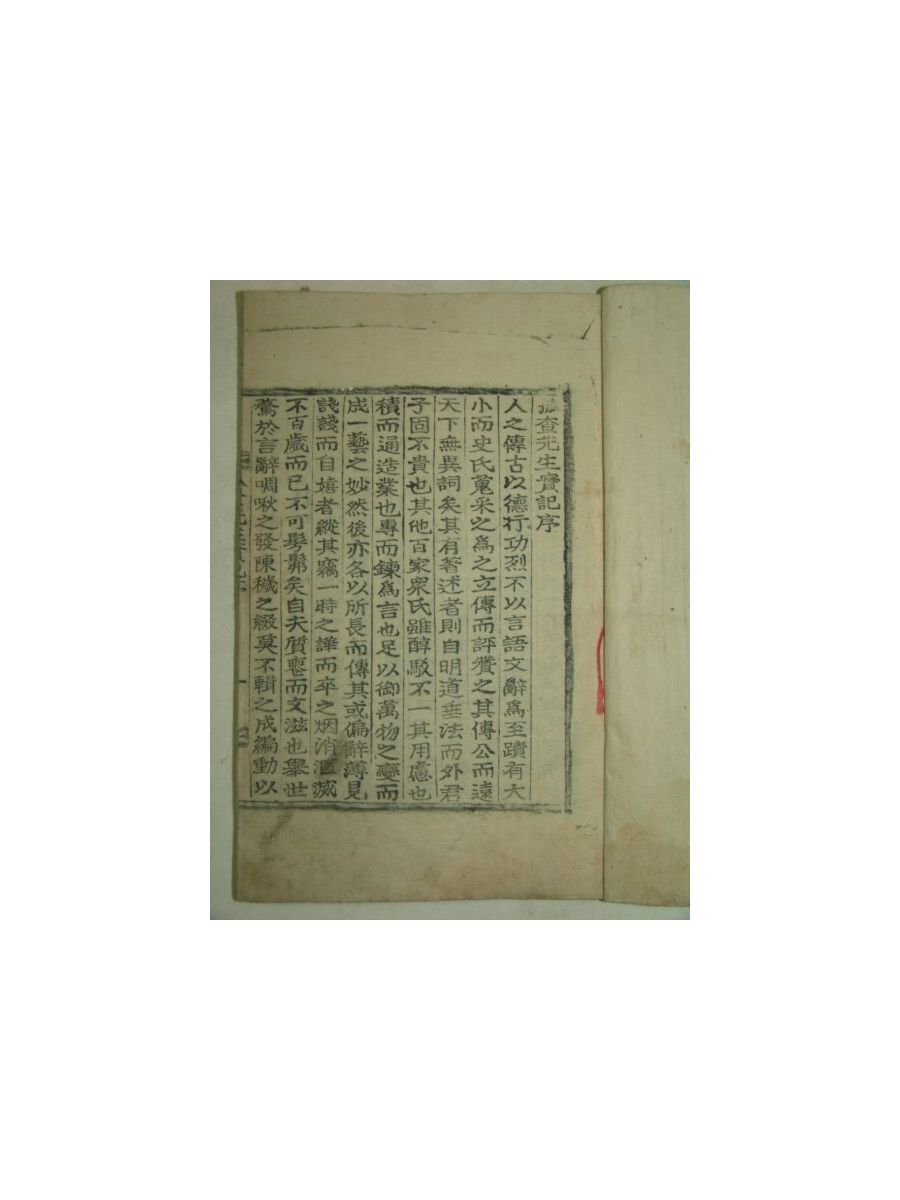 查先生實記序
人之傳古以德行功烈不以言語文辭爲至蹟有大
小而史氏蒐采之爲之立傳而評贊之其傳公而遠
天下無異詞矣其有著述者則自明道垂法而外君
子固不貴也其他百家眾氏雖醇駁不一其用慮也
積而通造業也專而鍊爲言也足以御萬物之變而
成一藝之妙然後亦各以所長而傳其或偏辭薄見
諓諓而自嬉者縱其竊一時之譁而卒之烟消漚滅
不百歲而已不可髣髴矣自夫質喪而文滋也舉世
騖於言辭啁啾之發陳穢之綴莫不輯之成編動以